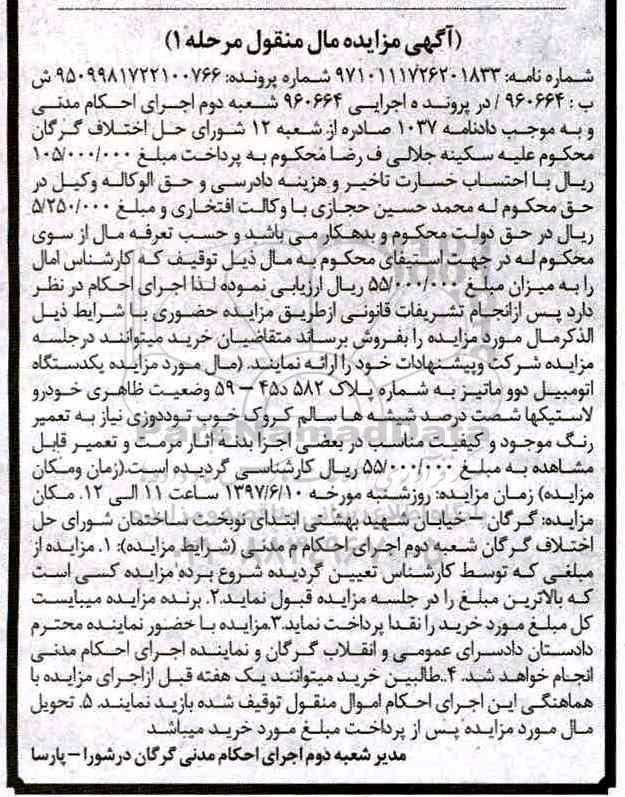 (آگهی مزایده مال منقول مرحله ۱)
شماره نامه: ۹۷۱۰۱۱۱۷۲۶۲۰۱۸۳۳ شماره پرونده: ۹۵۰۹۹۸۱۷۲۲۱۰۰۷۶۶ ش
ب : ۹۶۰۶۶۴ / در پرونده اجرایی ۹۶۰۶۶۴ شعبه دوم اجرای احکام مدنی
و به موجب دادنامه ۱۰۳۷ صادره از شعبه ۱۲ شورای حل اختلاف گرگان
محکوم علیه سکینه جلالی ف رضا محکوم به پرداخت مبلغ ۱۰۵/۰۰۰/۰۰۰
ریال با احتساب خسارت تاخیر و هزینه دادرسی و حق الوکاله وکیل در
حق محکوم له محمد حسین حجازی با وکالت افتخاری و مبلغ ۵/۲۵۰/۰۰۰
ریال در حق دولت محکوم و بدهکار می باشد و حسب تعرفه مال از سوی
محکوم له در جهت استیفای محکوم به مال ذیل توقیف که کارشناس امال
را به میزان مبلغ ۵۵/۰۰۰/۰۰۰ ریال ارزیابی نموده لذا اجرای احکام در نظر
دارد پس ازانجام تشریفات قانونی ازطریق مزایده حضوری با شرایط ذیل
الذکرمال مورد مزایده را بفروش برساند متقاضیان خرید میتوانند درجلسه
مزایده شرکت وپیشنهادات خود را ارائه نمایند. (مال مورد مزایده یکدستگاه
اتومبیل دوو ماتیز به شماره پلاک ۵۸۲ د۴۵ – ۵۹ وضعیت ظاهری خودرو
لاستیکها شصت درصد شیشه ها سالم کروک خوب تودوزی نیاز به تعمیر
رنگ موجود و کیفیت مناسب در بعضی اجزا بدنه آثار مرمت و تعمیر قابل
مشاهده به مبلغ ۵۵/۰۰۰/۰۰۰ ریال کارشناسی گردیده است.(زمان ومکان
مزایده) زمان مزایده: روزشنبه مورخه ۱۳۹۷/۶/۱۰ ساعت ۱۱ الی ۱۲. مکان
مزایده: گرگان – خیابان شهید بهشتی ابتدای نوبخت ساختمان شورای حل
اختلاف گرگان شعبه دوم اجرای احکام م مدنی (شرایط مزایده): ۱. مزایده از
مبلغی که توسط کارشناس تعیین گردیده شروع برده مزایده کسی است
که بالاترین مبلغ را در جلسه مزایده قبول نماید.۲. برنده مزایده میبایست
کل مبلغ مورد خرید را نقدا پرداخت نماید.۳.مزایده با حضور نماینده محترم
دادستان دادسرای عمومی و انقلاب گرگان و نماینده اجرای احکام مدنی
انجام خواهد شد. ۴..طالبین خرید میتوانند یک هفته قبل ازاجرای مزایده با
هماهنگی این اجرای احکام اموال منقول توقیف شده بازید نمایند. ۵. تحویل
مال مورد مزایده پس از پرداخت مبلغ مورد خرید میباشد
مدیر شعبه دوم اجرای احکام مدنی گرگان درشورا – پارسا